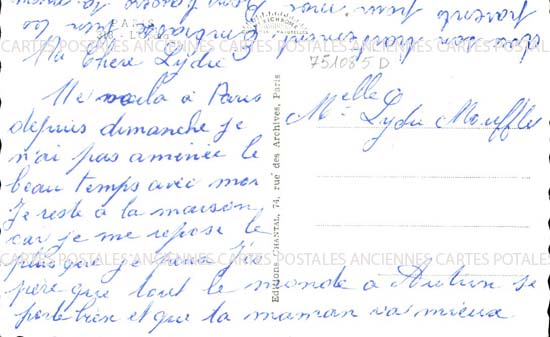 PARIS
Ma Chere Lydie
Me voila à Paris
depuis dimanche je
n'ai pas aminée le
beau temps avec moi
Je reste à la maison
car je me repose le
plus que je peux J'es
père que tout le monde à Autun se
porte bien et que ta maman va mieux.
embrasse bien
parents pour moi
Editions CHANTAL, 74, rue des Archives, Paris
751085 D
Melle
Lydie Mouffle
CARTES POSTALES ANCIENNES CARTES POSTALES ANCIENNES CARTES POTALES
CARTES POSTALES ANCIENNES CARTES POSTALES ANCIENNES CARTES POTALES